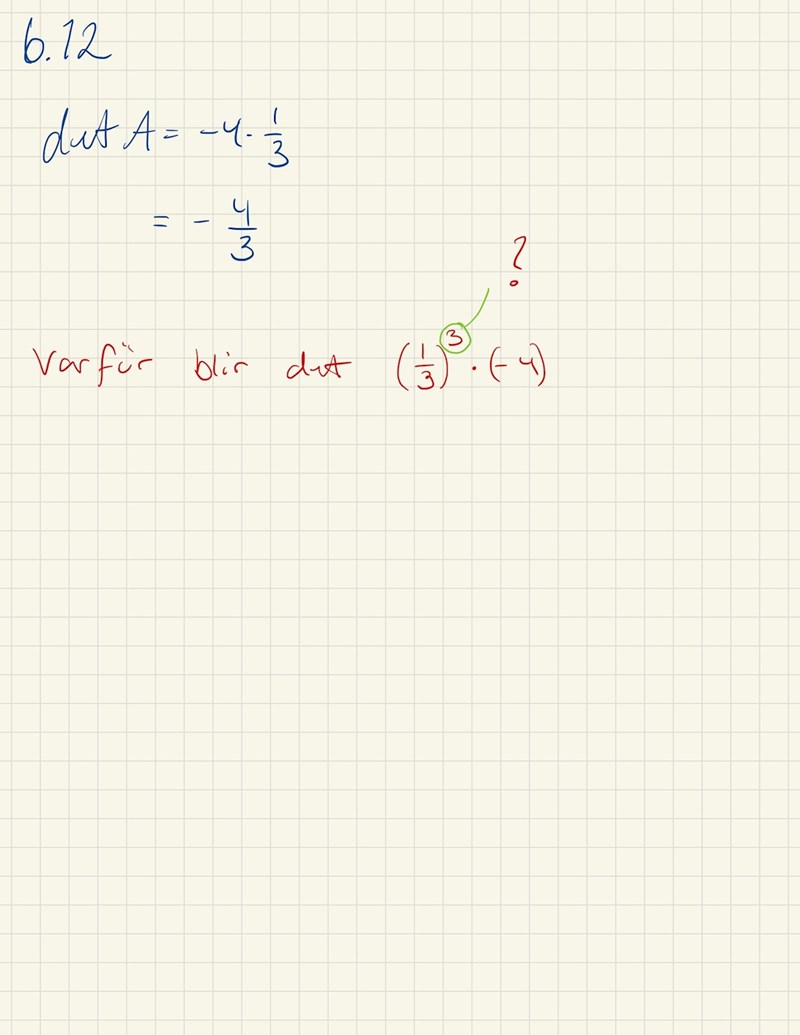 6.12
det A = -4 · 1/3
= - 4/3
?
Varför blir det (1/3)^3 · (-4)